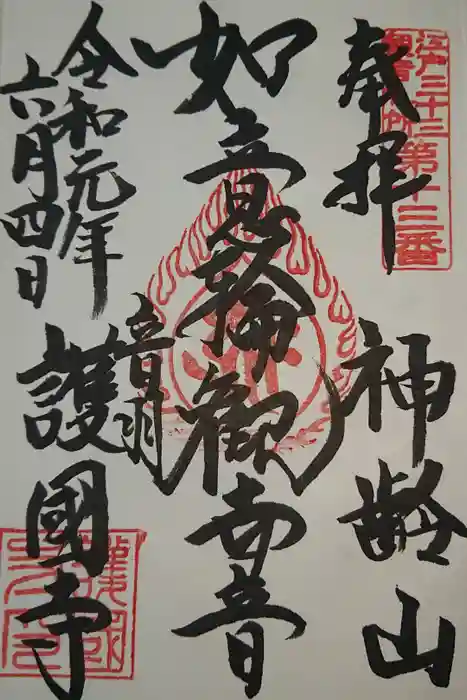 奉拝
江戸三十三
観音札所第十三番
神齢山
如意輪観世音
音羽
護國寺
令和元年
六月四日